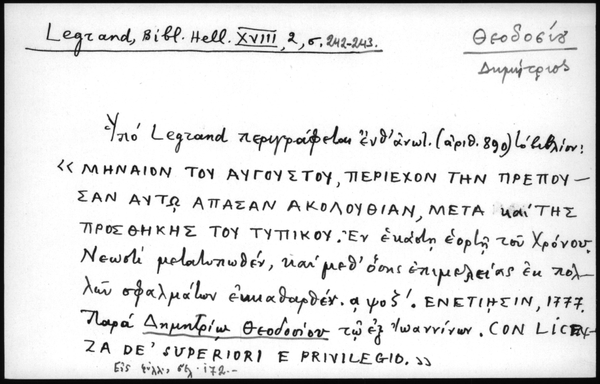 Legrand, Bibl. Hell. XVIII, 2, σ. 242-243.
Θεοδοσίου
Δημήτριος
Ὑπό Legrand περιγράφεται ἔνθ' ἀνωτ. (ἀριθ. 890) τό βιβλίον:
« ΜΗΝΑΙΟΝ ΤΟΥ ΑΥΓΟΥΣΤΟΥ, ΠΕΡΙΕΧΟΝ ΤΗΝ ΠΡΕΠΟΥ-
ΣΑΝ ΑΥΤῼ ΑΠΑΣΑΝ ΑΚΟΛΟΥΘΙΑΝ, ΜΕΤΑ καί ΤΗΣ
ΠΡΟΣΘΗΚΗΣ ΤΟΥ ΤΥΠΙΚΟΥ. Ἐν ἑκάστῃ ἑορτῇ τοῦ Χρόνου.
Νεωστί μετατυπωθέν, καί μεθ' ὅσης ἐπιμελείας ἐκ πολ-
λῶν σφαλμάτων ἐκκαθαρθέν. ͵αψοζ΄. ΕΝΕΤΙῌΣΙΝ, 1777.
Παρά Δημητρίῳ Θεοδοσίου τῷ ἐξ Ἰωαννίνων. CON LICEN-
ZA DE' SUPERIORI E PRIVILEGIO. »
Εἰς φύλλ., σελ. 172.-